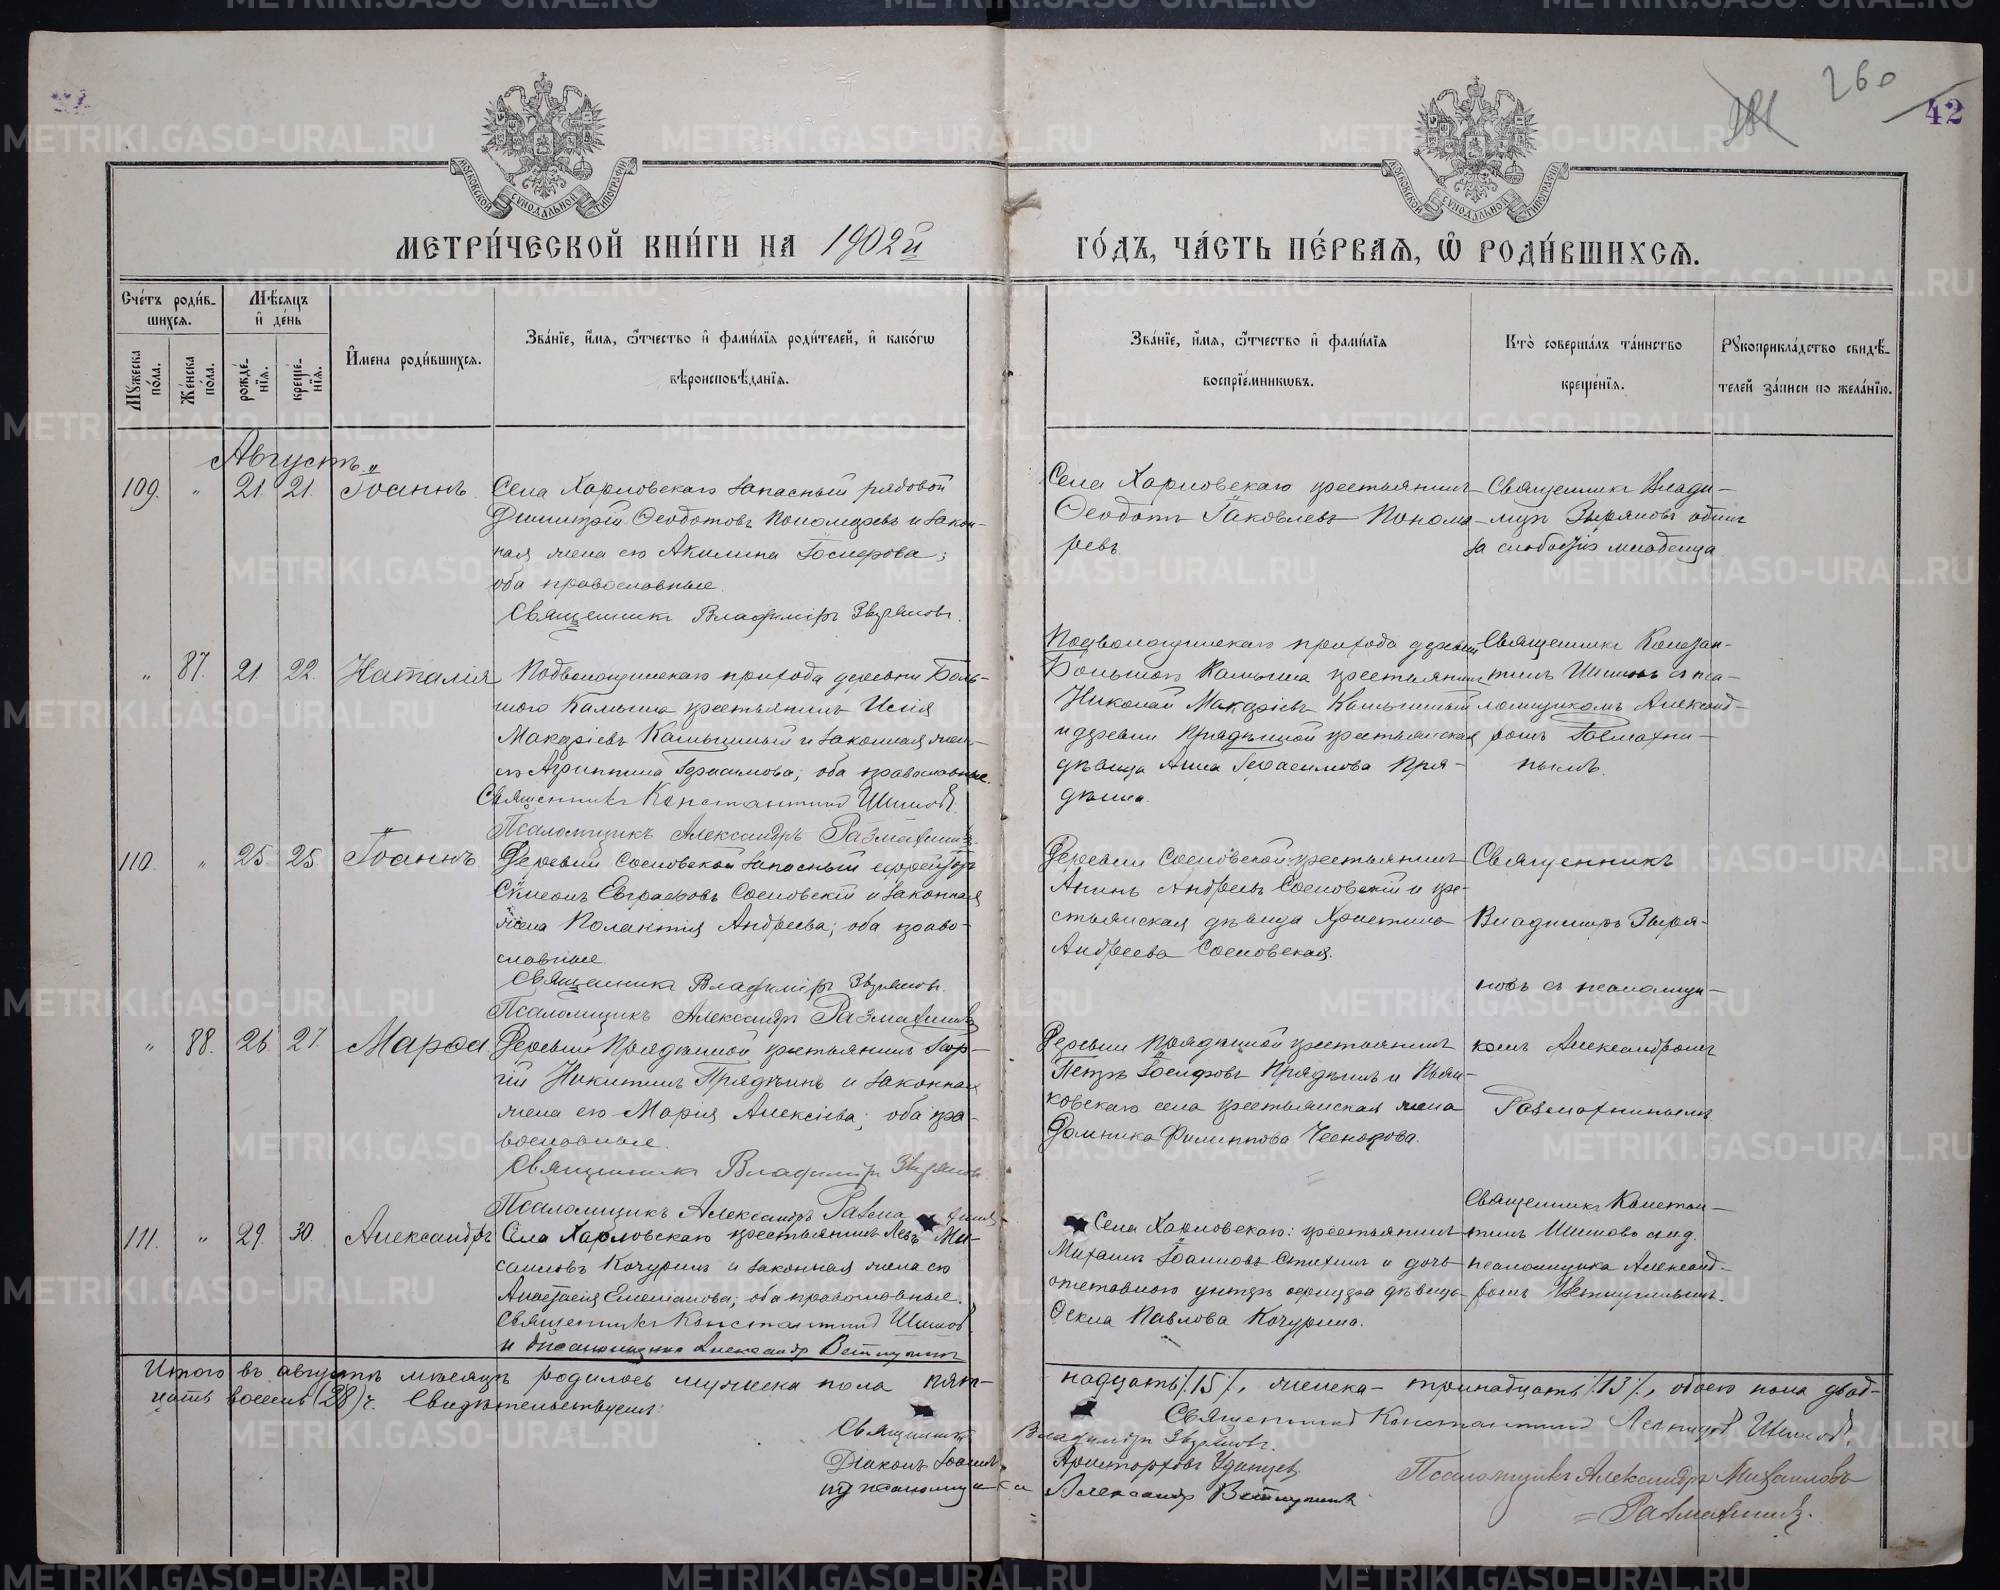 260
281
42
МОСКОВСКОЙ СѴНОДАЛЬНОЙ ТИПОГРАФІИ
МОСКОВСКОЙ СѴНОДАЛЬНОЙ ТИПОГРАФІИ
МЕТРИ́ЧЕСКОЙ КНИ́ГИ НА 1902й ГО́ДЪ, ЧА́СТЬ ПЕ́РВАѦ, Ѡ҆ РОДИ́ВШИХСѦ.
Сче́тъ роди́в-
шихсѧ.
Мѣ́сѧцъ
и҆ де́нь
Мꙋ́жеска
по́ла.
Же́нска
по́ла.
рожде́-
нїѧ.
креще́-
нїѧ.
И҆мена̀ роди́вшихсѧ.
Зва́нїе, и҆́мѧ, ѻ҆́тчество и҆ фами́лїѧ роди́телей, и҆ како́гѡ
вѣроисповѣ́данїѧ.
Зва́нїе, и҆́мѧ, ѻ҆́тчество и҆ фами́лїѧ
воспрїе́мникѡвъ.
Кто̀ соверша́лъ та́инство
креще́нїѧ.
Рꙋкоприкла́дство свидѣ́-
телей за́писи по жела́нїю.
Августъ
109. " 21. 21. Іоаннъ
Села Харловскаго запасный рядовой
Димитрій Ѳеодотовъ Пономаревъ и закон-
ная жена его Акилина Іосифова;
оба православные.
Священникъ Владиміръ Зыряновъ.
Села Харловскаго крестьянинъ
Ѳеодотъ Іаковлевъ Понома-
ревъ
Священникъ Влади-
міръ Зыряновъ одинъ
за слабостію младенца
" 87. 21. 22. Наталія
Подволошинскаго прихода деревни Боль-
шого Камыша крестьянинъ Исаія
Макаріевъ Камышный и законная жена
его Агриппина Герасимова; оба православные.
Священникъ Константинъ Шишовъ.
Псаломщикъ Александръ Размахнинъ
Подволошинскаго прихода деревни
Большого Камыша крестьянинъ
Николай Макаріевъ Камышный
и деревни Прядѣиной крестьянская
дѣвица Анна Герасимова Пря-
дѣина.
Священникъ Констан-
тинъ Шишовъ съ пса-
ломщикомъ Александ-
ромъ Размахни-
нымъ.
110. " 25. 25. Іоаннъ
Деревни Сосновской запасный ефрейторъ
Симеонъ Евграфовъ Сосновскій и законная
жена Полактія Андреева; оба право-
славные.
Священникъ Владиміръ Зыряновъ.
Псаломщикъ Александръ Размахнинъ
Деревни Сосновской крестьянинъ
Андреевъ Сосновскій и кре-
стьянская дѣвица Христина
Андреева Сосновская.
Священникъ
Владиміръ Зыря-
новъ съ псаломщи-
комъ Александромъ
Размахнинымъ
" 88. 26. 27. Марѳа
Деревни Прядѣиной крестьянинъ Геор-
гій Никитинъ Прядѣинъ и законная
жена его Марія Алексіева; оба пра-
вославные.
Священникъ Владиміръ Зыряновъ
Псаломщикъ Александръ Размахнинъ
Деревни Прядѣиной крестьянинъ
Петръ Іосифовъ Прядѣинъ и Пьян-
ковскаго села крестьянская жена
Домника Филиппова Чеснокова.
111. " 29. 30. Александръ
Села Харловскаго крестьянинъ Левъ Ми-
саиловъ Кочуринъ и законная жена его
Анастасія Емеліанова; оба православные.
Священникъ Константинъ Шишовъ
и д. псаломщика Александръ Ветлугинъ
Села Харловскаго: крестьянинъ
Михаилъ Іоанновъ Стихинъ и дочь
отставного унтеръ офицера дѣвица
Ѳекла Павлова Кочурина.
Священникъ Констан-
тинъ Шишовъ съ и.д.
псаломщика Александ-
ромъ Ветлугинымъ.
Итого въ августѣ мѣсяцѣ родилось мужеска пола пят-надцать /15/, женска - тринадцать /13/, обоего пола двад-
цать восемь (28) ч. Свидѣтельствуемъ:
Священникъ Константинъ Леонидовъ Шишовъ.
Священникъ Владиміръ Зыряновъ.
Діаконъ Іоаннъ Аристарховъ Удинцев
ид псаломщика Александръ Ветлугинъ
Псаломщикъ Александръ Михаиловъ
Размахнинъ.